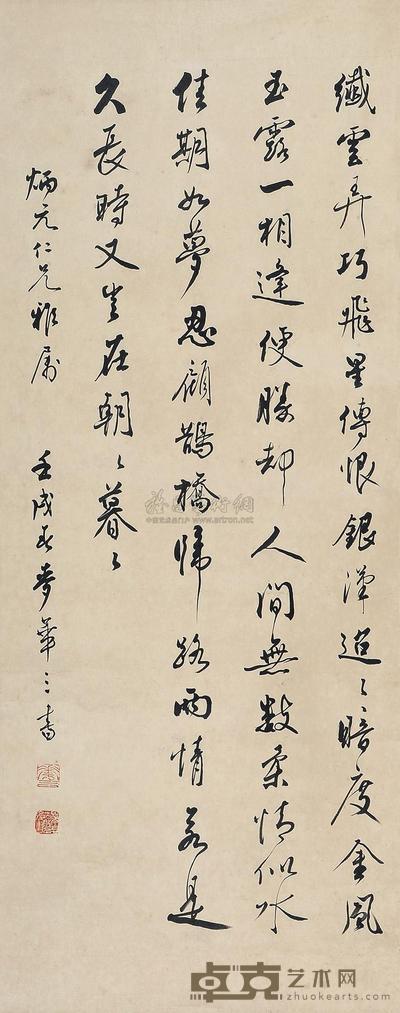 纖雲弄巧飛星傳恨銀漢迢〻暗度金風
玉露一相逢便勝却人間無數柔情似水
佳期如夢忍顧鵲橋歸路兩情若是
久長時又豈在朝〻暮〻
炳元仁兄雅屬 壬戌 麥華三書
卓克艺术网
www.zhuokearts.com